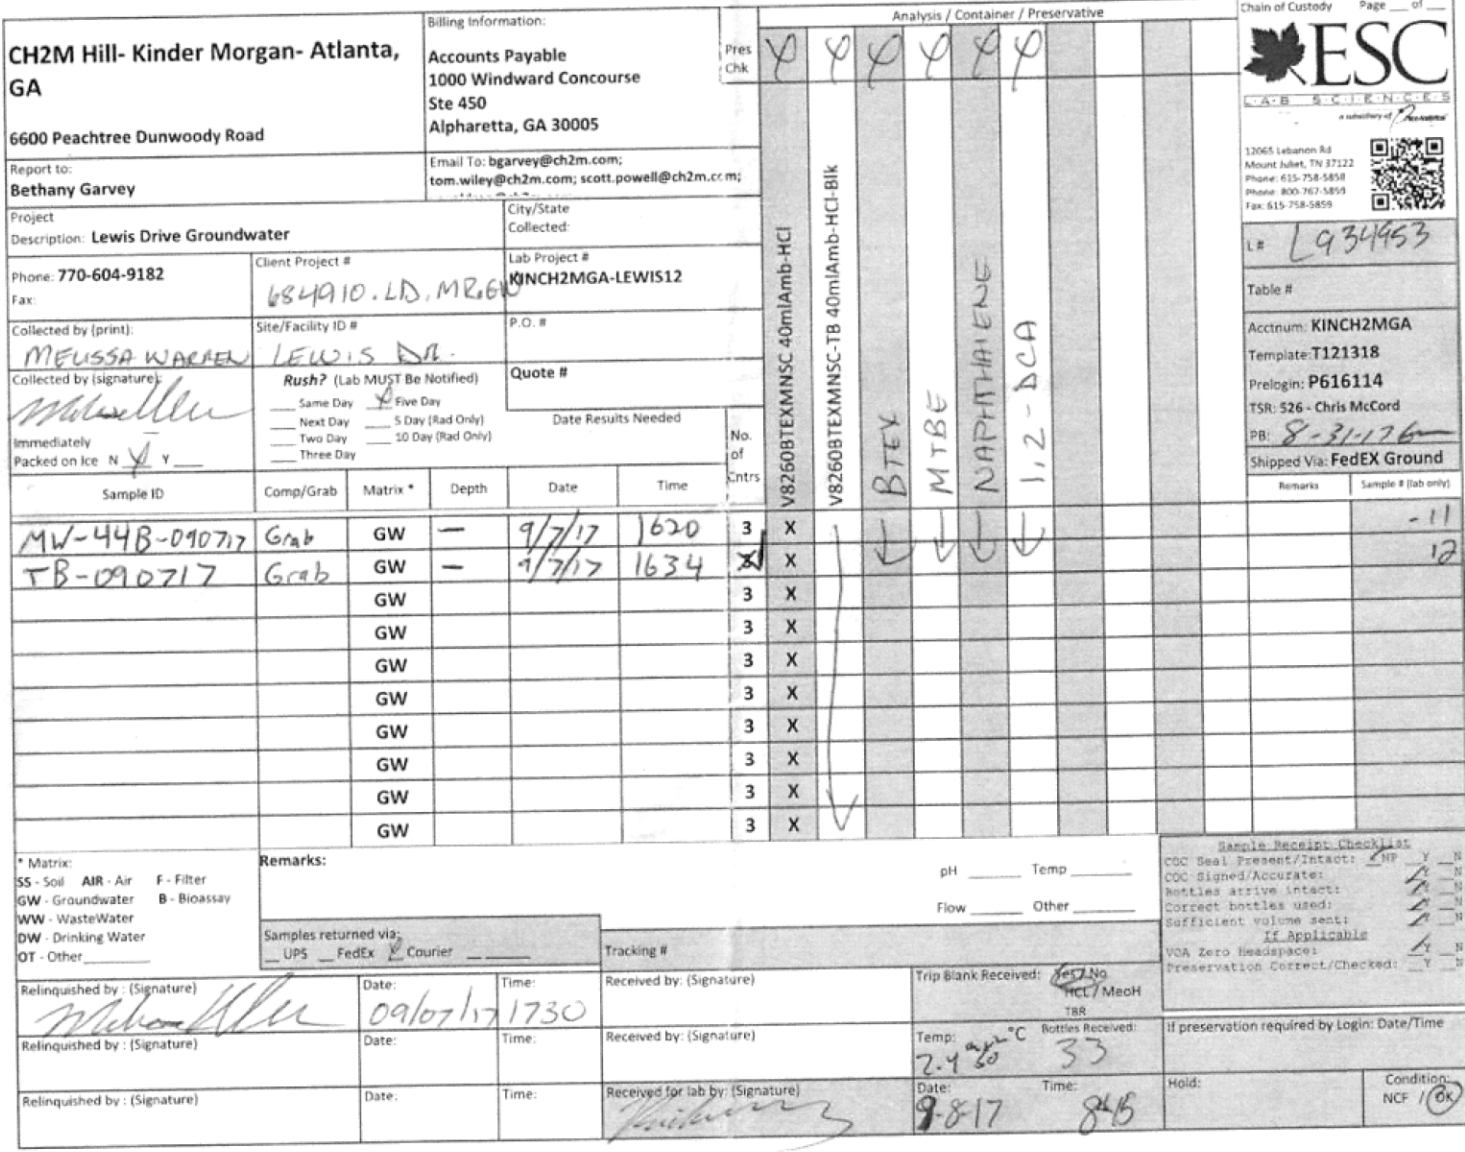 Chain of Custody Page ___ of ___
CH2M Hill- Kinder Morgan- Atlanta,
GA
6600 Peachtree Dunwoody Road
Billing Information:
Accounts Payable
1000 Windward Concourse
Ste 450
Alpharetta, GA 30005
Pres
Chk
Analysis / Container / Preservative
ESC
L·A·B S·C·I·E·N·C·E·S
a subsidiary of
12065 Lebanon Rd
Mount Juliet, TN 37122
Phone: 615-758-5858
Phone: 800-767-5859
Fax: 615-758-5859
Report to:
Bethany Garvey
Email To: bgarvey@ch2m.com;
tom.wiley@ch2m.com; scott.powell@ch2m.com;
Project
Description: Lewis Drive Groundwater
City/State
Collected:
Phone: 770-604-9182
Fax:
Client Project #
684910.LD.MR.GW
Lab Project #
KINCH2MGA-LEWIS12
Collected by (print):
MELISSA WARREN
Site/Facility ID #
LEWIS DR.
P.O. #
Collected by (signature):
Rush? (Lab MUST Be Notified)
___ Same Day X Five Day
___ Next Day ___ 5 Day (Rad Only)
___ Two Day ___ 10 Day (Rad Only)
___ Three Day
Quote #
Date Results Needed
Immediately
Packed on Ice N ___ Y ___
No.
of
Cntrs
V8260BTEXMNSC 40mlAmb-HCl
V8260BTEXMNSC-TB 40mlAmb-HCl-Blk
BTEX
MTBE
NAPHTHALENE
1,2-DCA
L# L934953
Table #
Acctnum: KINCH2MGA
Template: T121318
Prelogin: P616114
TSR: 526 - Chris McCord
PB: 8-31-17
Shipped Via: FedEX Ground
Sample ID Comp/Grab Matrix * Depth Date Time Remarks Sample # (lab only)
MW-44B-090717 Grab GW — 9/7/17 1620 3 X -11
TB-090717 Grab GW — 9/7/17 1634 1 X 12
GW 3 X
GW 3 X
GW 3 X
GW 3 X
GW 3 X
GW 3 X
GW 3 X
GW 3 X
* Matrix:
SS - Soil AIR - Air F - Filter
GW - Groundwater B - Bioassay
WW - WasteWater
DW - Drinking Water
OT - Other
Remarks:
pH ___ Temp ___
Flow ___ Other ___
Samples returned via:
___ UPS ___ FedEx X Courier ___
Tracking #
Sample Receipt Checklist
COC Seal Present/Intact: NP Y N
COC Signed/Accurate: Y N
Bottles arrive intact: Y N
Correct bottles used: Y N
Sufficient volume sent: Y N
If Applicable
VOA Zero Headspace: Y N
Preservation Correct/Checked: Y N
Relinquished by : (Signature)
Date: 09/07/17
Time: 1730
Received by: (Signature)
Trip Blank Received: Yes / No
HCL / MeoH
TBR
Relinquished by : (Signature)
Date:
Time:
Received by: (Signature)
Temp: 2.4 °C
Bottles Received: 33
If preservation required by Login: Date/Time
Relinquished by : (Signature)
Date:
Time:
Received for lab by: (Signature)
Date: 9-8-17
Time: 845
Hold:
Condition:
NCF / OK